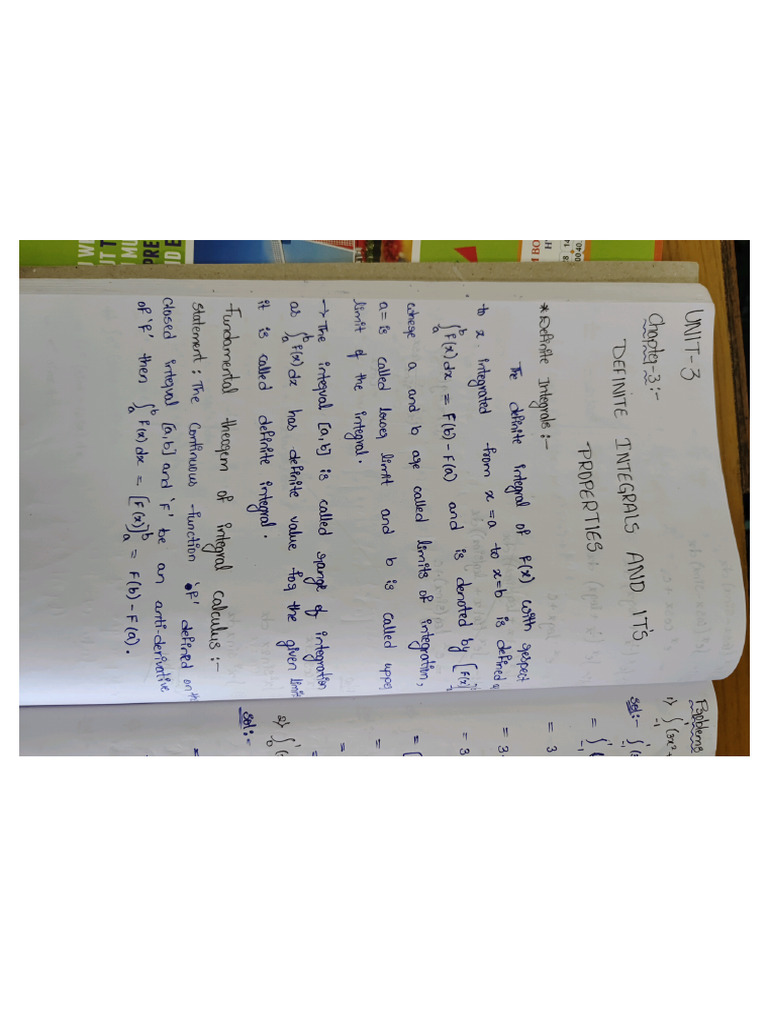 UNIT-3
Chapter-3:-
DEFINITE INTEGRALS AND IT'S
PROPERTIES :
*Definite Integrals:-
The definite integral of f(x) with respect
to x. integrated from x=a to x=b is defined
∫ₐᵇ f(x)dx = F(b)-F(a) and is denoted by [F(x)]
where a and b are called limits of integration,
a= is called lower limit and b is called upper
limit of the integral.
→ The integral [a,b] is called range of integration
as ∫ₐᵇ f(x)dx has definite value for the given limits
it is called definite integral.
Fundamental theorem of integral calculus:-
statement: The continuous function 'f' defined on
closed integral [a,b] and 'F' be an anti-derivative
of 'f' then ∫ₐᵇ f(x)dx = [F(x)]ₐᵇ = F(b)-F(a).
Problems
1) ∫₋₁¹ (3x²+
sol:- ∫₋₁¹ (
= ∫₋₁¹ (
= 3
= 3
= 3
= [
=
=
=
2) ∫₀¹ (
sol:-
=